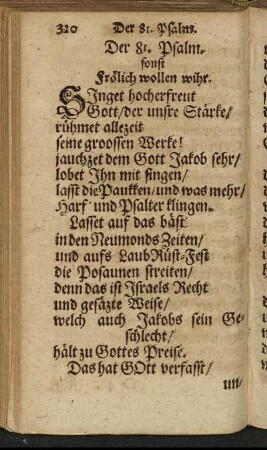 320 Der 81. Psalm.
Der 81. Psalm.
sonst
Frölich wollen wihr.
SInget hocherfreut
Gott/der unsre Stärke/
rühmet allezeit
seine groossen Werke!
jauchzet dem Gott Jakob sehr/
lobet Ihn mit singen/
lasst die Paukken/und was mehr/
Harf und Psalter klingen.
Lasset auf das bäst
in den Neumonds Zeiten/
und aufs Laub Rüst-Fest
die Posaunen streiten/
denn das ist Israels Recht
und gesäzte Weise/
welch auch Jakobs sein Ge-
schlecht/
hält zu Gottes Preise.
Das hat GOtt verfasst/
un-